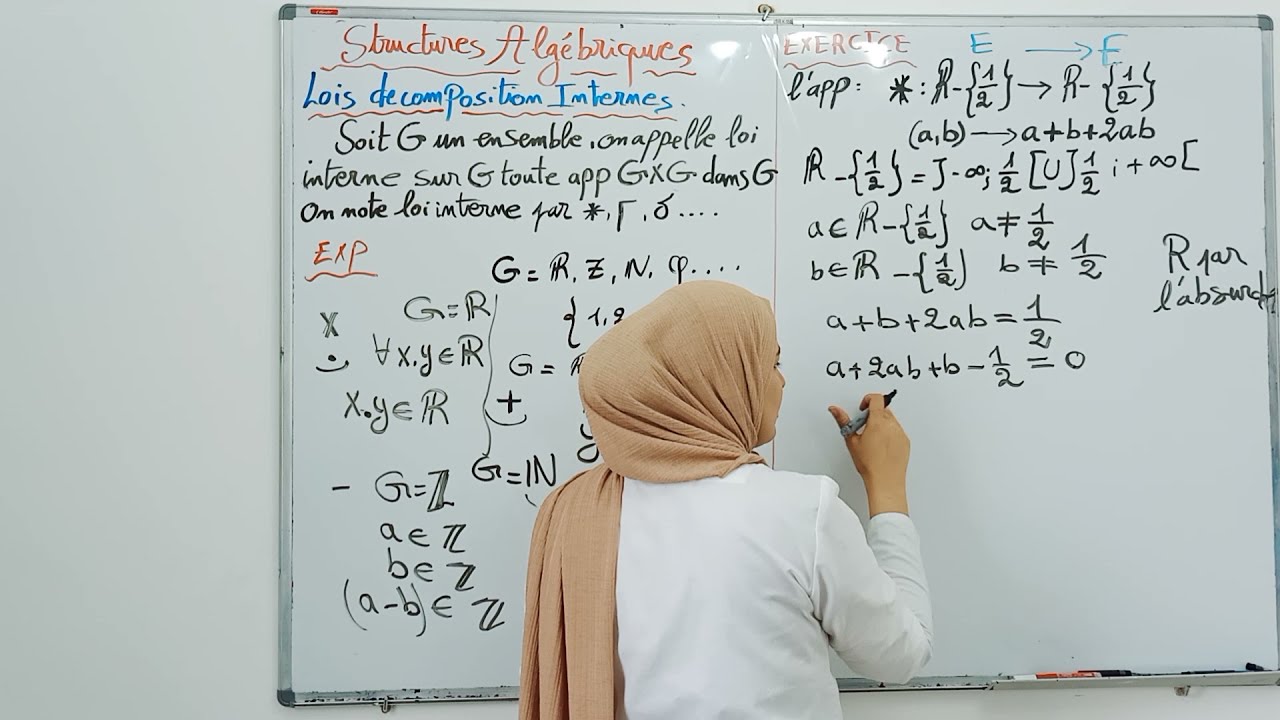 Structures Algébriques
Lois de composition Internes.
Soit G un ensemble, on appelle loi
interne sur G toute app G×G dans G
On note loi interne par *, Γ, δ....
EXP
G = ℝ, ℤ, ℕ, φ....
x
G=ℝ
∀x.y∈ℝ
x.y∈ℝ
{1,2
G =
+
G=ℕ
- G=ℤ
a∈ℤ
b∈ℤ
(a-b)∈ℤ
EXERCICE E → F
l'app: *: ℝ-{1/2} → ℝ-{1/2}
(a,b) → a+b+2ab
ℝ-{1/2} = ]-∞;1/2[U]1/2;+∞[
a∈ℝ-{1/2} a≠1/2
b∈ℝ-{1/2} b≠1/2
R par
l'absurde
a+b+2ab=1/2
a+2ab+b-1/2=0